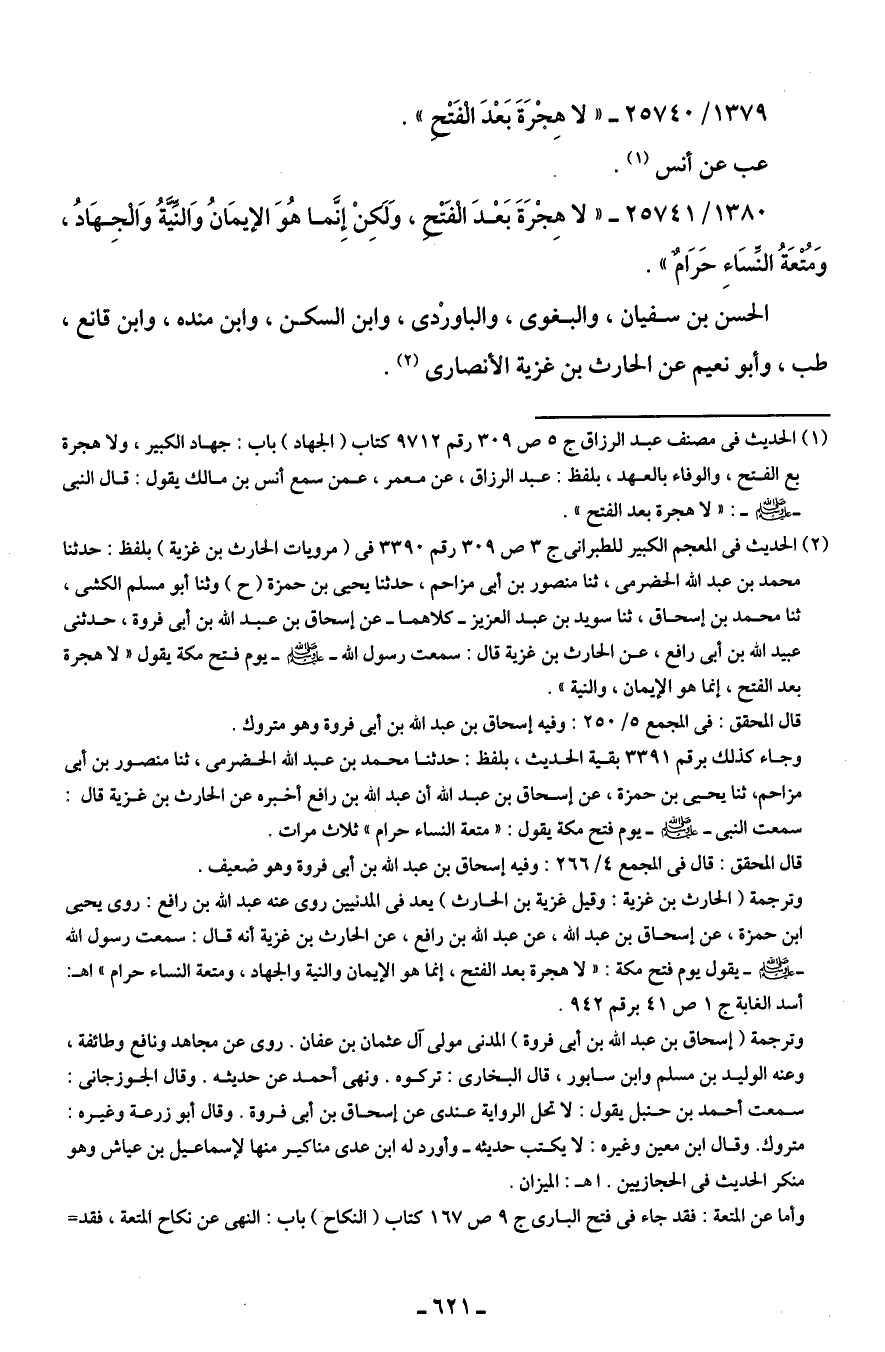 ٢٥٧٤٠/١٣٧٩ ـ « لا هِجْرَةَ بَعْدَ الْفَتْحِ » .
عب عن أنس (١) .
٢٥٧٤١/١٣٨٠ ـ « لا هِجْرَةَ بَعْـدَ الْفَتْحِ ، ولَكِنْ إِنَّمـا هُوَ الإيمَانُ وَالنِّيَّةُ وَالْجِـهَادُ ،
وَمُتْعَةُ النِّسَاءِ حَرَامٌ » .
الحسن بن سـفيان ، والبـغوى ، والباوردْى ، وابن السكـن ، وابن منده ، وابن قانع ،
طب ، وأبو نعيم عن الحارث بن غزية الأنصارى (٢) .
(١) الحديث فى مصنف عبـد الرزاق ج ٥ ص ٣٠٩ رقم ٩٧١٢ كتاب ( الجهاد ) باب : جهـاد الكبير ، ولا هجرة
بع الفـتح ، والوفاء بالعـهد ، بلفظ : عبـد الرزاق ، عن معمر ، عمـن سمع أنس بن مـالك يقول : قـال النبى
ـ ﷺ ـ : « لا هجرة بعد الفتح » .
(٢) الحديث فى المعجم الكبير للطبرانى ج ٣ ص ٣٠٩ رقم ٣٣٩٠ فى ( مرويات الحارث بن غزية ) بلفظ : حدثنا
محمد بن عبد الله الحضرمى ، ثنا منصور بن أبى مزاحم ، حدثنا يحيى بن حمزة ( ح ) وثنا أبو مسلم الكشى ،
ثنا محـمد بن إسـحاق ، ثنا سويد بن عبـد العزيز ـ كلاهمـا ـ عن إسحاق بن عبـد الله بن أبى فروة ، حـدثنى
عبيد الله بن أبى رافع ، عـن الحارث بن غزية قال : سمعت رسول الله ـ ﷺ ـ يوم فـتح مكة يقول « لا هجرة
بعد الفتح ، إنما هو الإيمان ، والنية » .
قال المحقق : فى المجمع ٥/ ٢٥٠ : وفيه إسحاق بن عبد الله بن أبى فروة وهو متروك .
وجـاء كذلك برقم ٣٣٩١ بقـية الحـديث ، بلفظ : حدثنـا محـمد بن عـبد الله الحـضرمى ، ثنا منصـور بن أبى
مزاحم، ثنا يحـيى بن حمزة ، عن إسـحاق بن عبـد الله أن عبد الله بن رافع أخـبره عن الحارث بن غـزية قال :
سمعت النبى ـ ﷺ ـ يوم فتح مكة يقول : « متعة النساء حرام » ثلاث مرات .
قال المحقق : قال فى المجمع ٤/ ٢٦٦ : وفيه إسحاق بن عبد الله بن أبى فروة وهو ضعيف .
وترجمة ( الحارث بن غزية : وقيل غزية بن الحـارث ) يعد فى المدنيين روى عنه عبد الله بن رافع : روى يحيى
ابن حمزة ، عن إسحـاق بن عبد الله ، عن عبد الله بن رافع ، عن الحارث بن غزية أنه قـال : سمعت رسول الله
ـ ﷺ ـ يقول يوم فتح مكة : « لا هجرة بعد الفتح ، إنما هو الإيمان والنية والجهاد ، ومتعة النساء حرام » اهـ:
أسد الغابة ج ١ ص ٤١ برقم ٩٤٢ .
وترجمة ( إسحاق بن عبد الله بن أبى فروة ) المدنى مولى آل عثمان بن عفان . روى عن مجاهد ونافع وطائفة ،
وعنه الوليـد بن مسلم وابن سـابور ، قال البـخارى : تركـوه . ونهى أحمـد عن حديثـه . وقال الجـوزجانى :
سـمعت أحـمد بن حنـبل يقول : لا تحل الرواية عنـدى عن إسحـاق بن أبى فـروة . وقال أبو زرعـة وغيـره :
متروك. وقـال ابن معين وغيره : لا يكـتب حديثه ـ وأورد له ابن عدى مناكيـر منها لإسماعـيل بن عياش وهو
منكر الحديث فى الحجازيين . ا هـ : الميزان .
وأما عن المتعة : فقد جاء فى فتح البـارى ج ٩ ص ١٦٧ كتاب ( النكاح ) باب : النهى عن نكاح المتعة ، فقد=
ـ ٦٢١ ـ